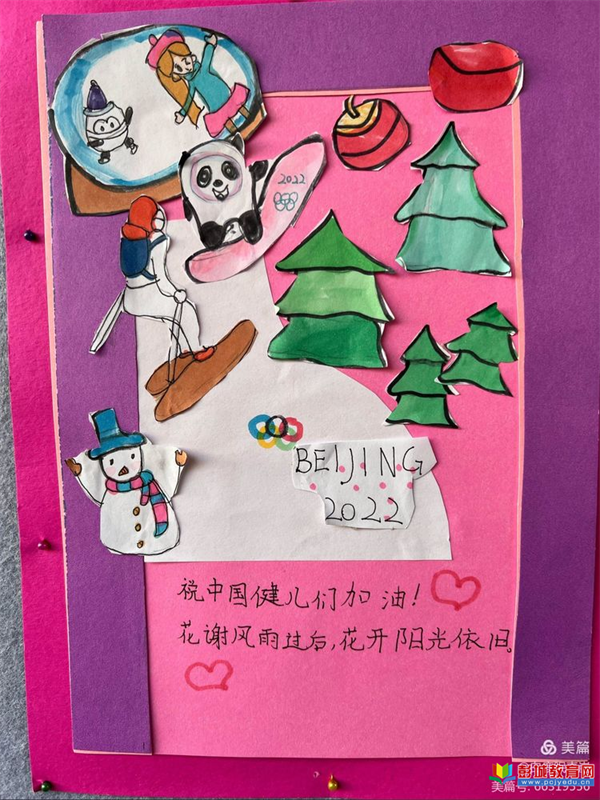 2022
BEIJING
2022
祝中国健儿们加油!
花谢风雨过后,花开阳光依旧。
美篇
彭城教育网
www.pcjyedu.cn